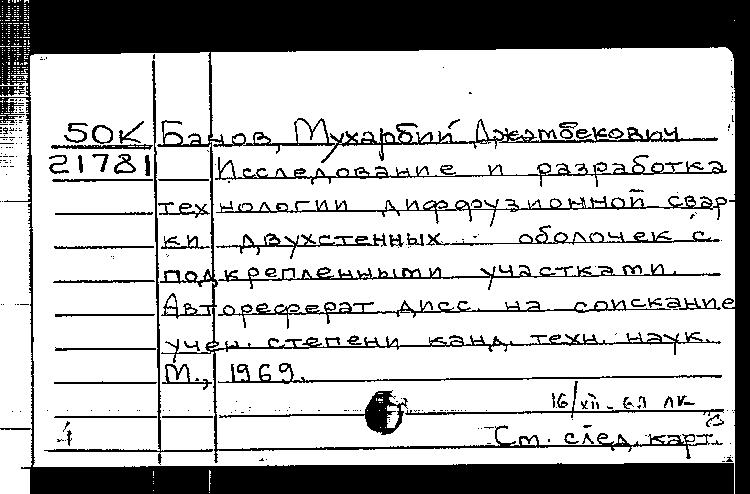 50К Банов, Мухарбий Джамбекович
21781 Исследование и разработка
технологии диффузионной свар-
ки двухстенных оболочек с
подкрепленными участками.
Автореферат дисс. на соискание
учен. степени канд. техн. наук.
М., 1969.
16/XII-69 ЛК
См. след. карт.